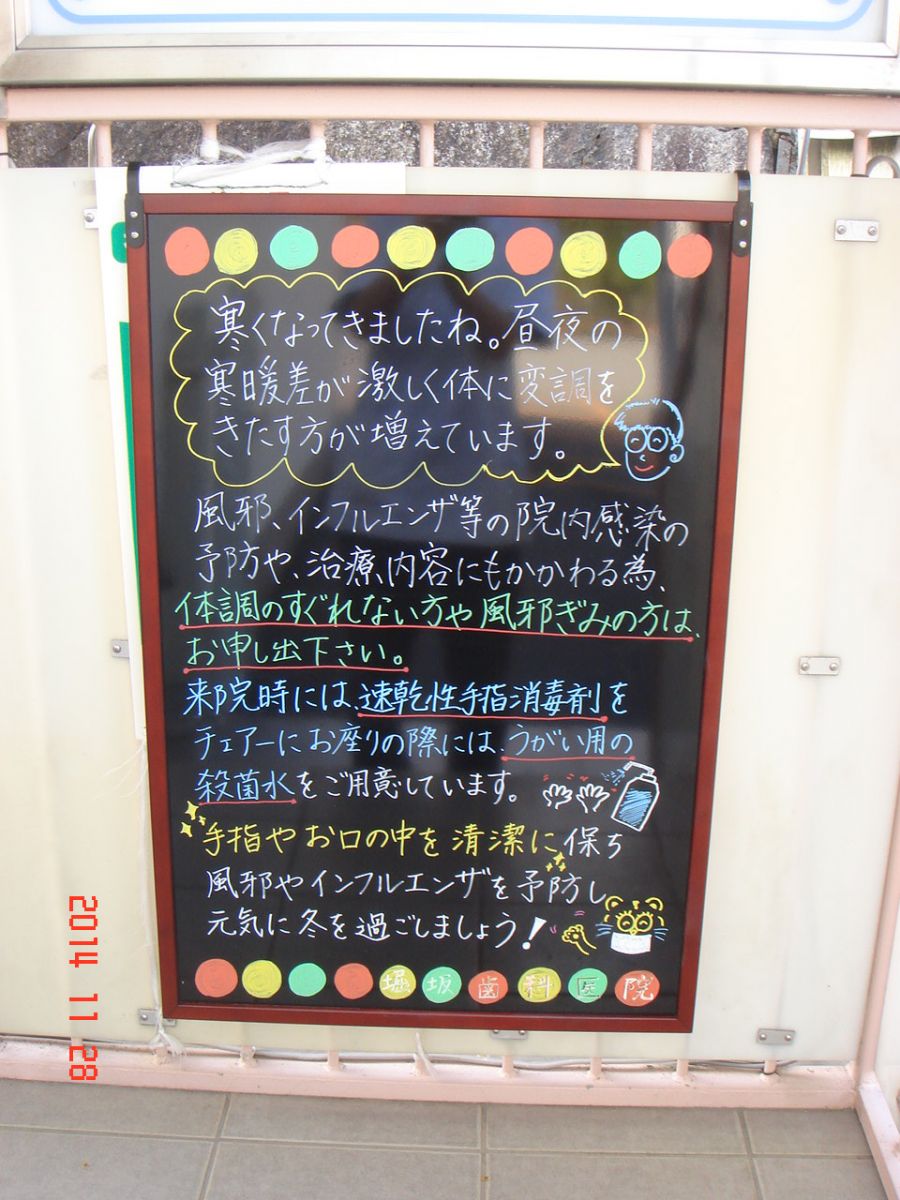 寒くなってきましたね。昼夜の
寒暖差が激しく体に変調を
きたす方が増えています。
風邪、インフルエンザ等の院内感染の
予防や、治療、内容にもかかわる為、
体調のすぐれない方や風邪ぎみの方は、
お申し出下さい。
来院時には、速乾性手指消毒剤を
チェアーにお座りの際には、うがい用の
殺菌水をご用意しています。
手指やお口の中を清潔に保ち
風邪やインフルエンザを予防し
元気に冬を過ごしましょう!
堀坂歯科医院
2014 11 28